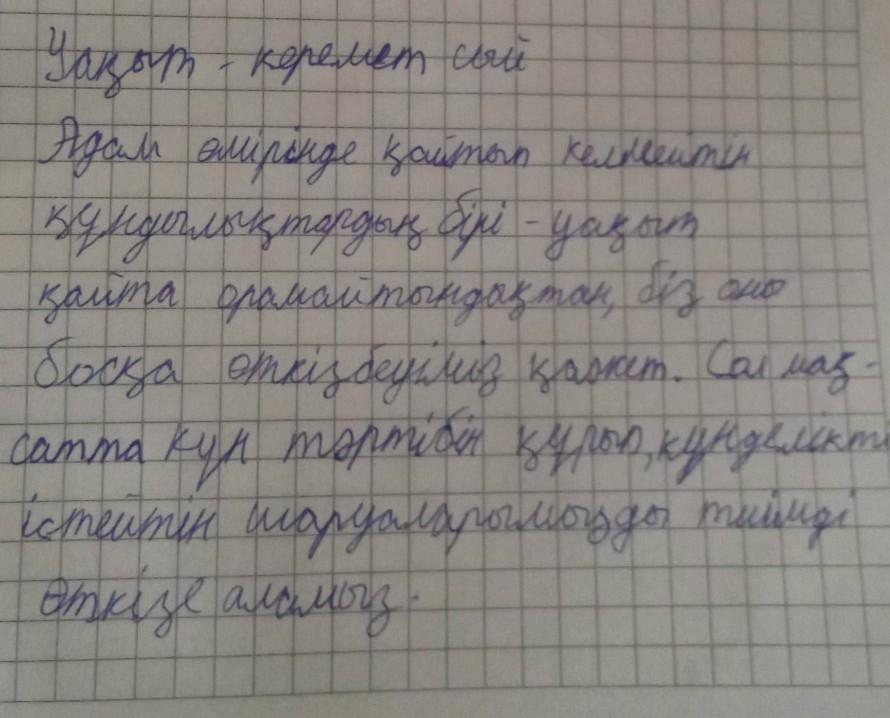 Уақыт - керемет сый
Адам өмірінде қайтып келмейтін
құндылықтардың бірі - уақыт
қайта оралмайтындақтан, біз оны
босқа өткізбеуіміз қажет. Сол мақ-
сатта күн тәртібін құрып, күнделікті
істейтін шаруаларымызды тиімді
өткізе аламыз.